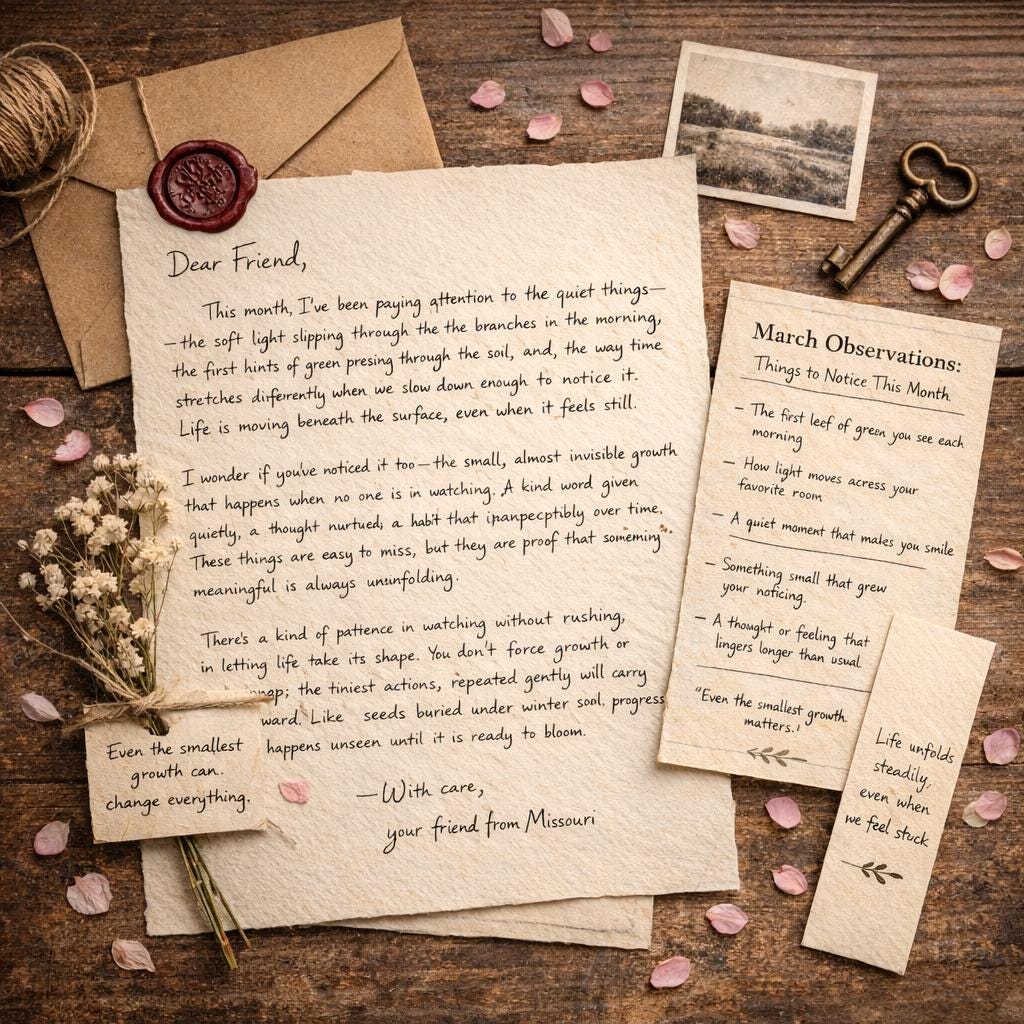 Dear Friend,
This month, I've been paying attention to the quiet things—
—the soft light slipping through the the branches in the morning,
the first hints of green presing through the soil, and, the way time
stretches differently when we slow down enough to notice it.
Life is moving beneath the surface, even when it feels still.
I wonder if you've noticed it too—the small, almost invisible growth
that happens when no one is in watching. A kind word given
quietly, a thought nurtued, a habit that over time.
These things are easy to miss, but they are proof that
meaningful is always
There's a kind of in watching without rushing,
in letting life take its shape. You don't force growth or
the tiniest actions, repeated gently will carry
ward. Like seeds buried under winter progress
happens unseen until it is ready to bloom.
—With care,
your friend from Missouri
Even the smallest
growth can.
change everything.
March Observations:
Things to Notice This Month
– The first leef of green you see each
morning
– How light moves acress your
favorite room
– A quiet moment that makes you smile
– Something small that grew
your noticing.
– A thought or feeling that
lingers longer than usual.
"Even the smallest growth
matters.'
Life unfolds
steadily,
even when
we feel stuck